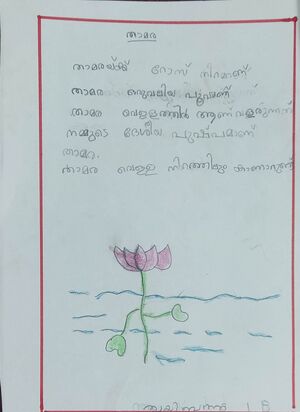 താമര
താമരയ്ക്ക് റോസ് നിറമാണ്
താമര ഒരുവലിയ പൂവാണ്
താമര വെള്ളത്തിൽ ആണ് വളരുന്നത്
നമ്മുടെ ദേശീയ പുഷ്പമാണ്
താമര.
താമര വെള്ള നിറത്തിലും കാണാറുണ്ട്